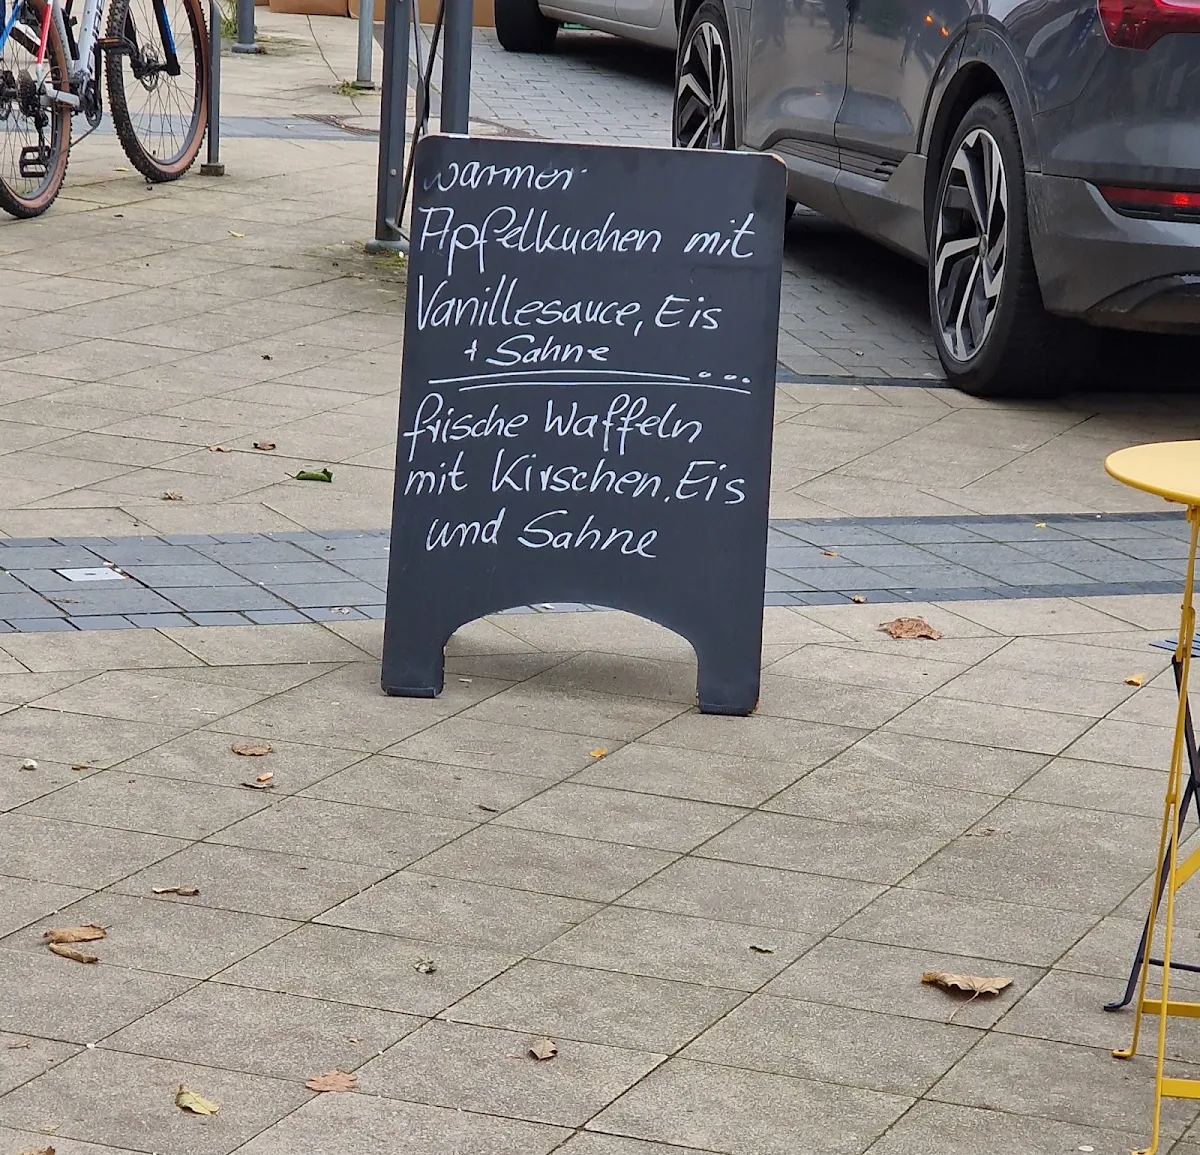 warmer
Apfelkuchen mit
Vanillesauce, Eis
+ Sahne
frische Waffeln
mit Kirschen, Eis
und Sahne